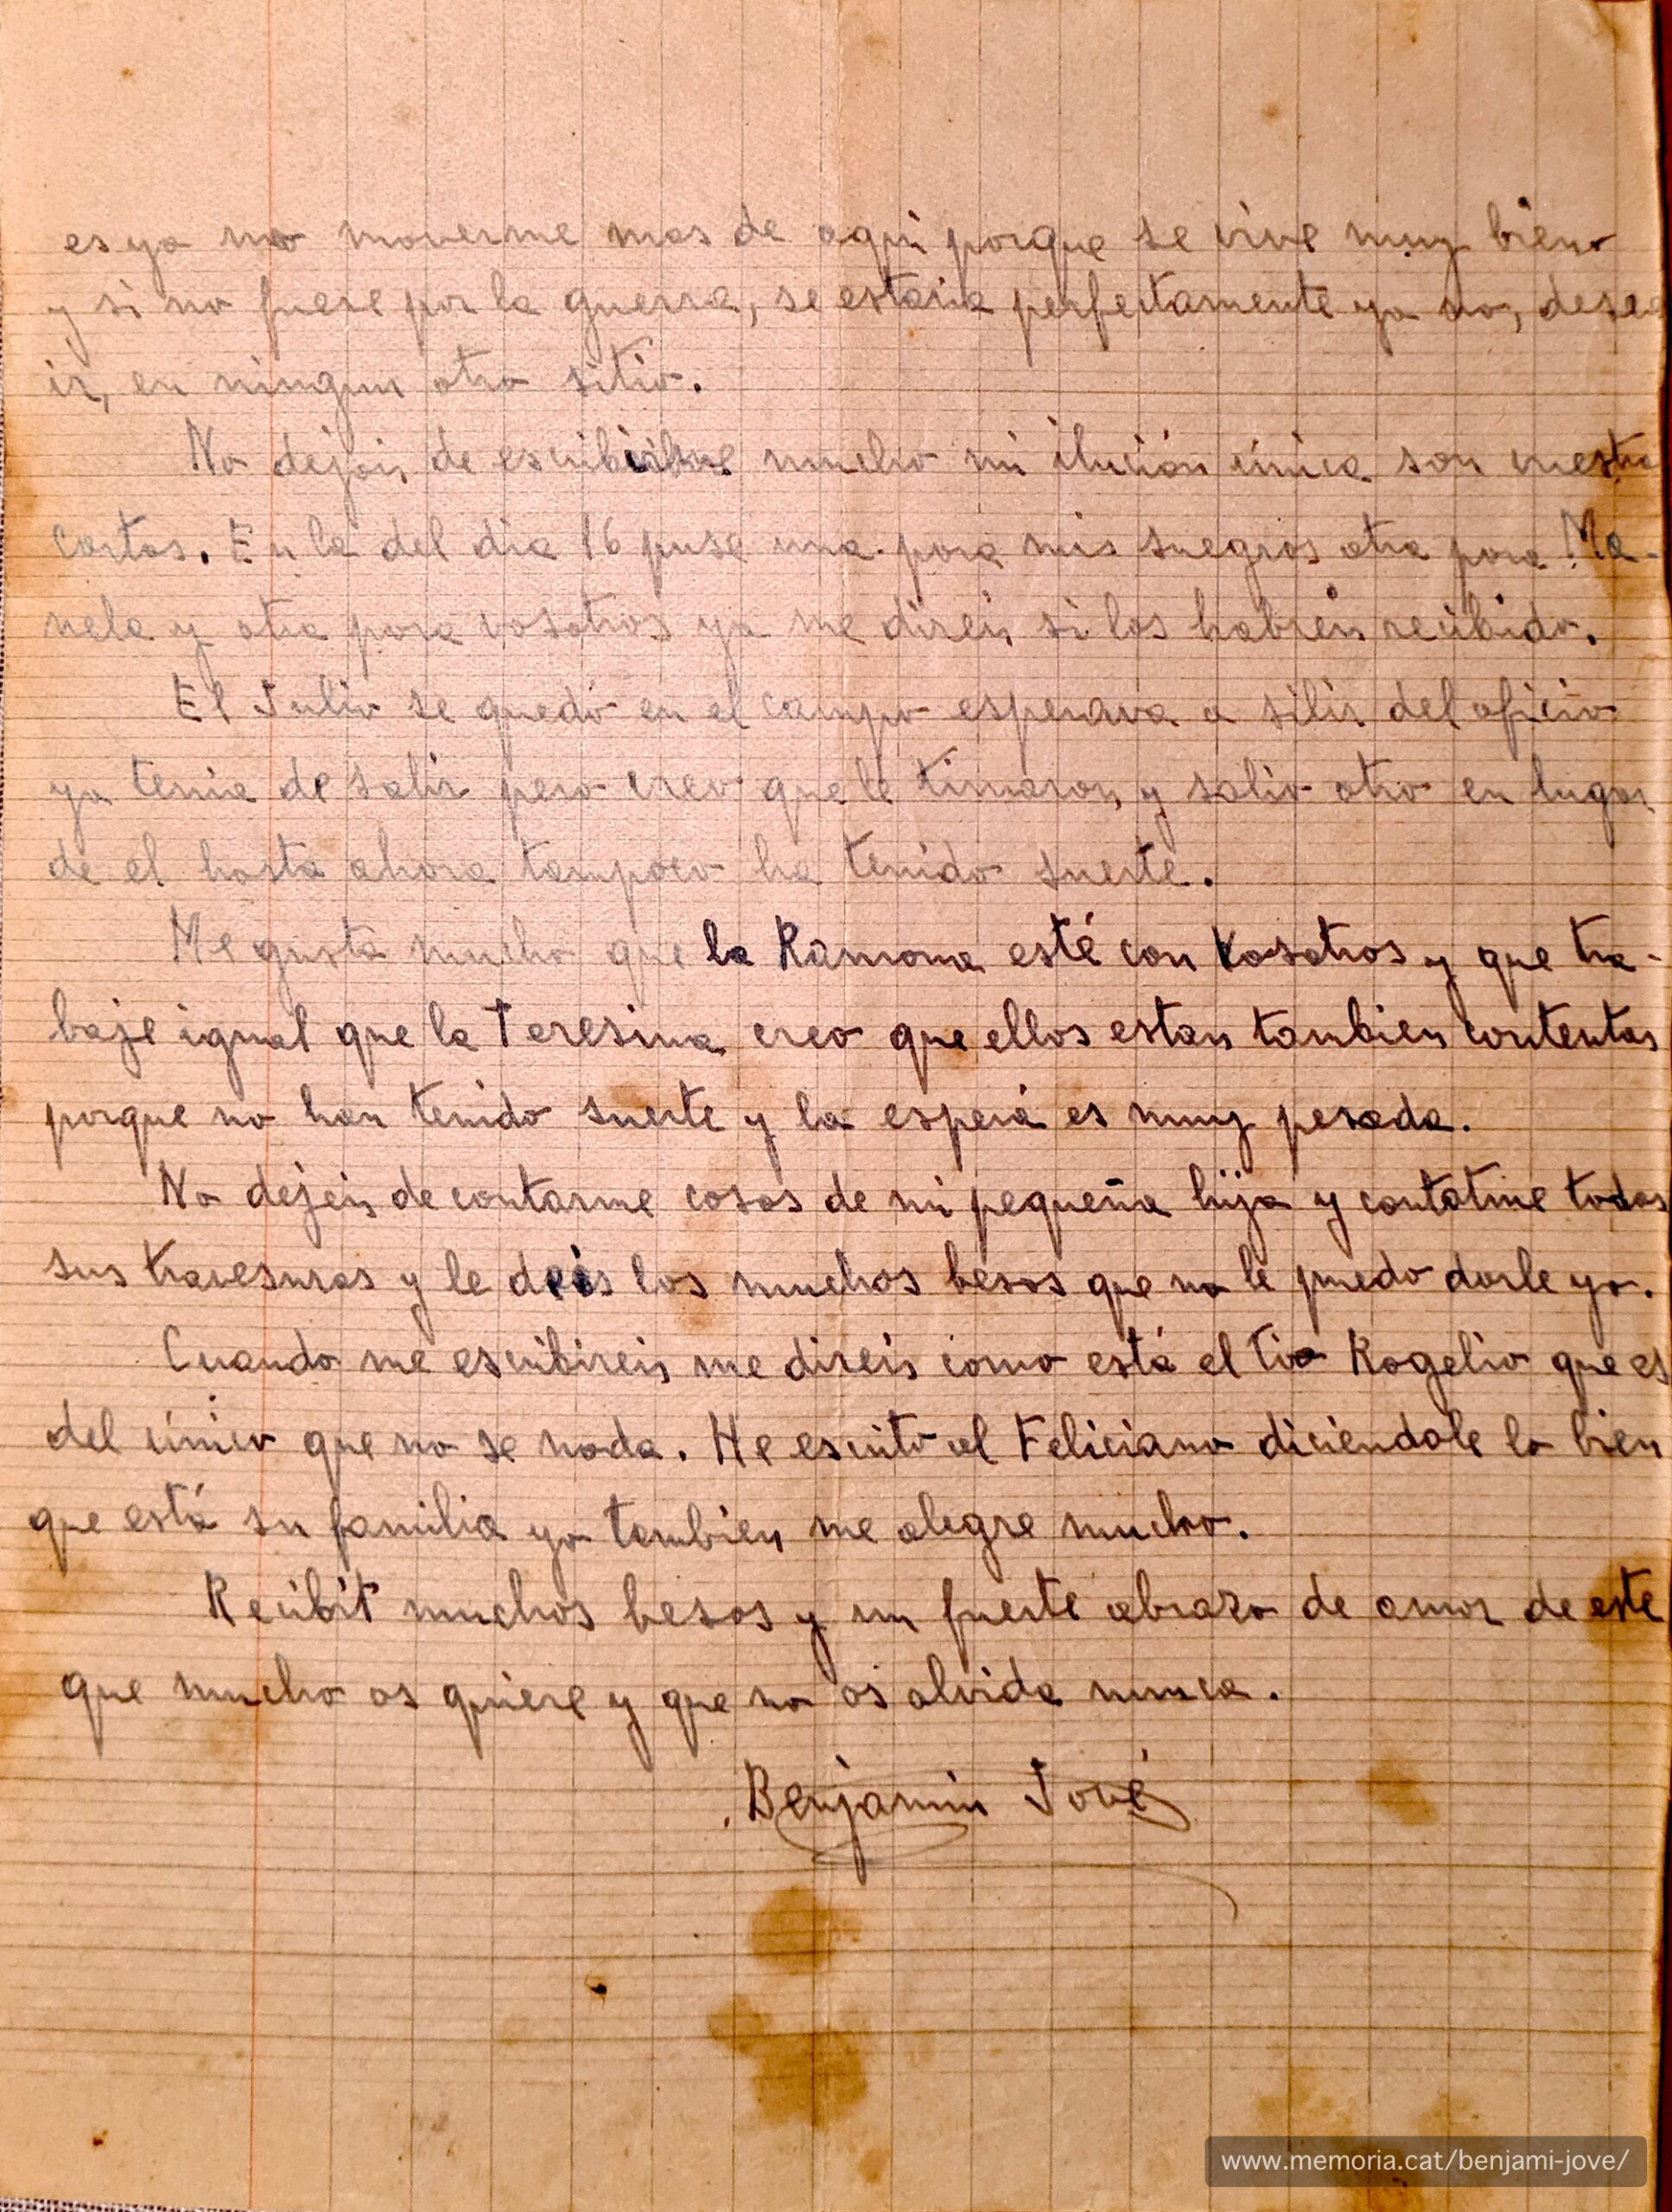 es ya no moverme mas de aqui porque se vive muy bien
y si no fuese por la guerra, se estaria perfectamente ya no, desea
ir, en ningun otro sitio.
No dejais de escribirme mucho mi ilución única son vuestra
cartas. En la del dia 16 puse una para mis suegros otra para Ma-
nela y otra para vosotros ya me direis si las habreis recibido.
El Julio se quedó en el campo esperava a silir del oficio
ya tenia de salir pero creo que le timaron y salio otro en lugar
de el hasta ahora tampoco ha tenido suerte.
Me gusta mucho que la Ramona esté con Vosotros y que tra-
baje igual que la Teresina creo que ellos estan tambien contentas
porque no han tenido suerte y la espera es muy pesada.
No dejeis de contarme cosas de mi pequeña hija y contatme todas
sus travesuras y le deis los muchos besos que no le puedo darle yo.
Cuando me escribireis me direis como está el tio Rogelio que es
del único que no se nada. He escrito al Feliciano diciendole lo bien
que está su familia yo tambien me alegre mucho.
Recibit muchos besos y un fuerte abrazo de amor de este
que mucho os quiere y que no os olvida nunca.
Benjamin Jové
www.memoria.cat/benjami-jove/